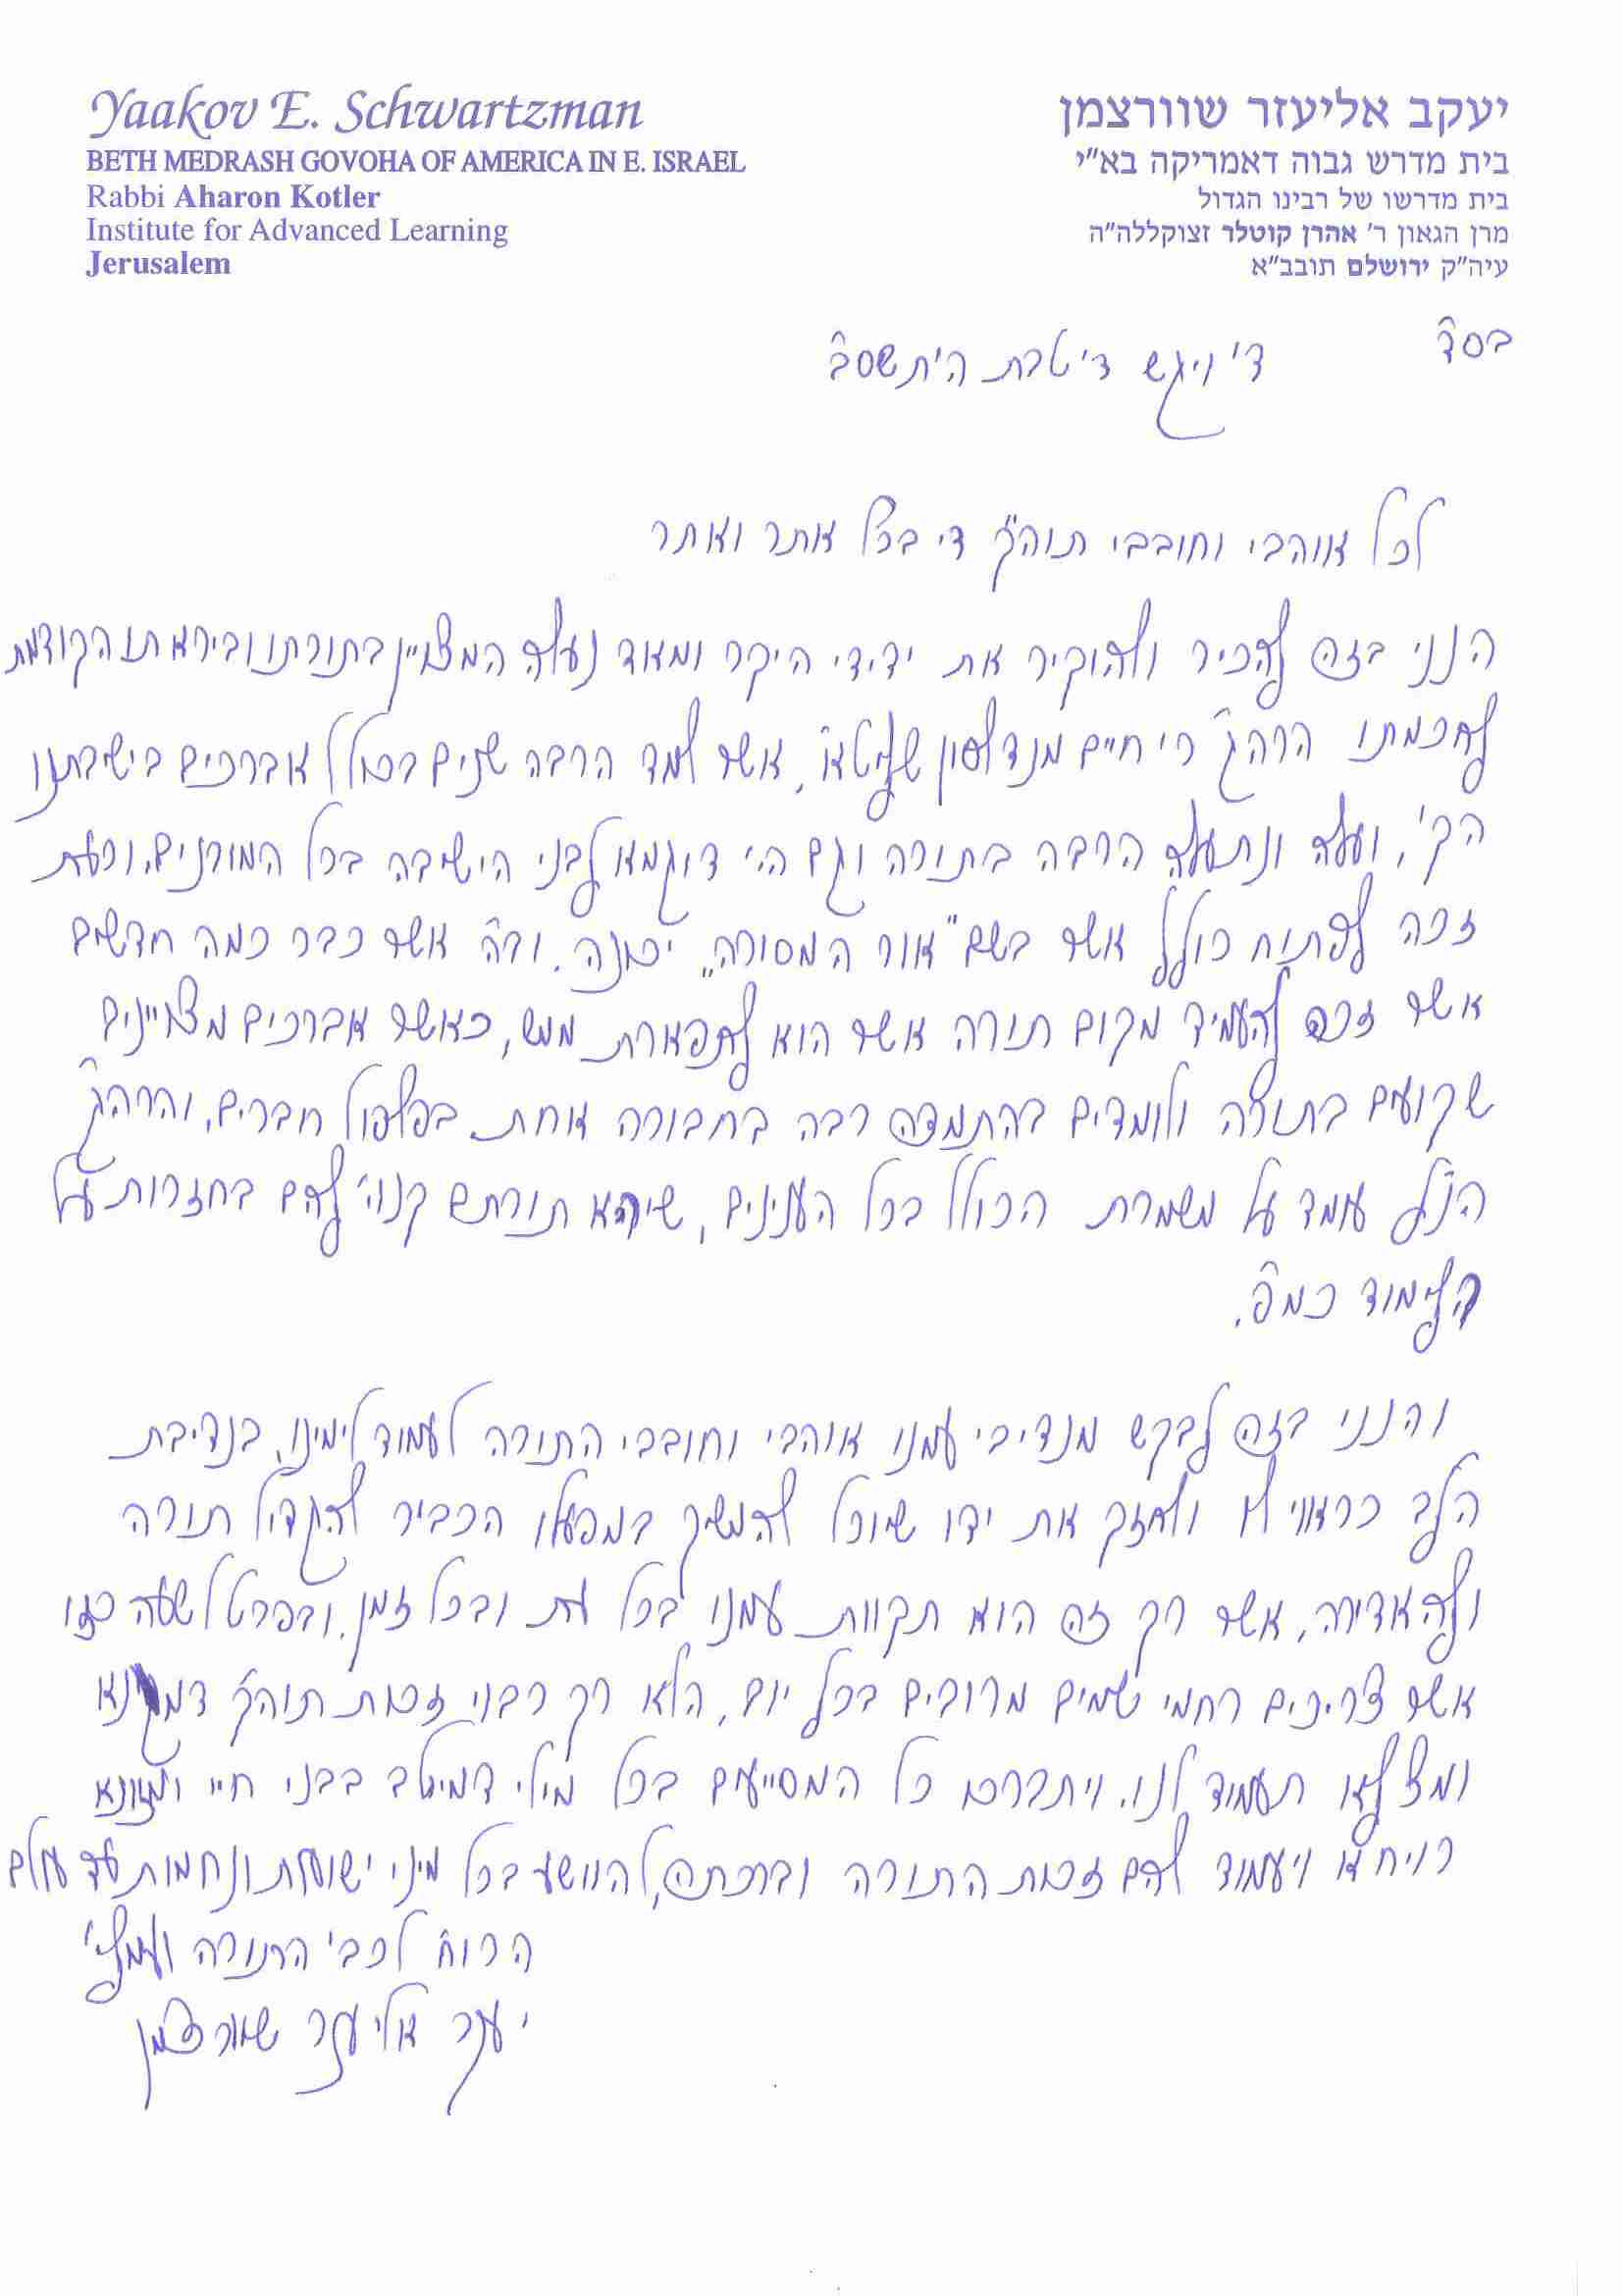 Yaakov E. Schwartzman
BETH MEDRASH GOVOHA OF AMERICA IN E. ISRAEL
Rabbi Aharon Kotler
Institute for Advanced Learning
Jerusalem
יעקב אליעזר שוורצמן
בית מדרש גבוה דאמריקה בא"י
בית מדרשו של רבינו הגדול
מרן הגאון ר' אהרן קוטלר זצוקללה"ה
עיה"ק ירושלם תובב"א
בס"ד
ד' ויגש ד' טבת ה'תשס"ב
לכל אווהבי וחובבי תוה"ק די בכל אתר ואתר
הנני בזה להכיר ולהוקיר את ידידי היקר ומאוד נעלה המצויין בתורתו וביראתו הקודמת
לחכמתו הרה"ג ר' חיים מנדלסון שליט"א, אשר למד הרבה שנים בכולל אברכים בישיבתנו
הק', ועלה ונתעלה הרבה בתורה וגם הי' דוגמא לבני הישיבה בכל המובנים. וכעת
זכה לפתוח כולל אשר בשם "אור המסורה" יכונה. וב"ה אשר כבר כמה חדשים
אשר זכה להעמיד מקום תורה אשר הוא לתפארת ממש, כאשר אברכים מצויינים
שקועים בתורה ולומדים בהתמדה רבה בחבורה אחת בפלפול חברים, והרה"ג
הנ"ל עומד על משמרת הכולל בכל הענינים, שיהא תורתם קנוי' להם בחזרות על
הלימוד כמ"פ.
והנני בזה לבקש מנדיבי עמנו אוהבי וחובבי התורה לעמוד לימינו, בנדיבת
הלב כראוי לו ולחזק את ידו שיוכל להמשיך במפעלו הכביר להגדיל תורה
ולהאדירה, אשר רק זה הוא תקוות עמנו בכל עת ובכל זמן. ובפרט לשעה כזו
אשר צריכים רחמי שמים מרובים בכל יום, הלא רק רבוי זכות תוה"ק דמגנא
ומצלא תעמוד לנו. ויתברכו כל המסייעים בכל מילי דמיטב בבני חיי ומזונא
רויחא ויעמוד להם זכות התורה וברכתה, להוושע בכל מיני ישועות ונחמות עד עולם
הכו"ח לכב' התורה ועמלי'
יעקב אליעזר שוורצמן